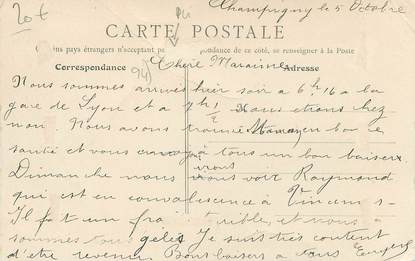 20 €
Champigny le 5 Octobre
CARTE POSTALE
pays étrangers n'acceptent pas correspondance de ce côté, se renseigner à la Poste
Correspondance Adresse
94
Chère Marraine
Nous sommes arrivés hier soir a 6h16 a la
gare de Lyon et a 7h½ nous etions chez
nous. Nous avons trouvé Maman en bonne
santé et vous envoyons a tous un bon baiser
Dimanche nous irons voir Raymond
qui est en convalescence à Vincennes
Il fait un froid et nous
sommes tous gelés Je suis très content
d'être revenu Bons baisers a tous